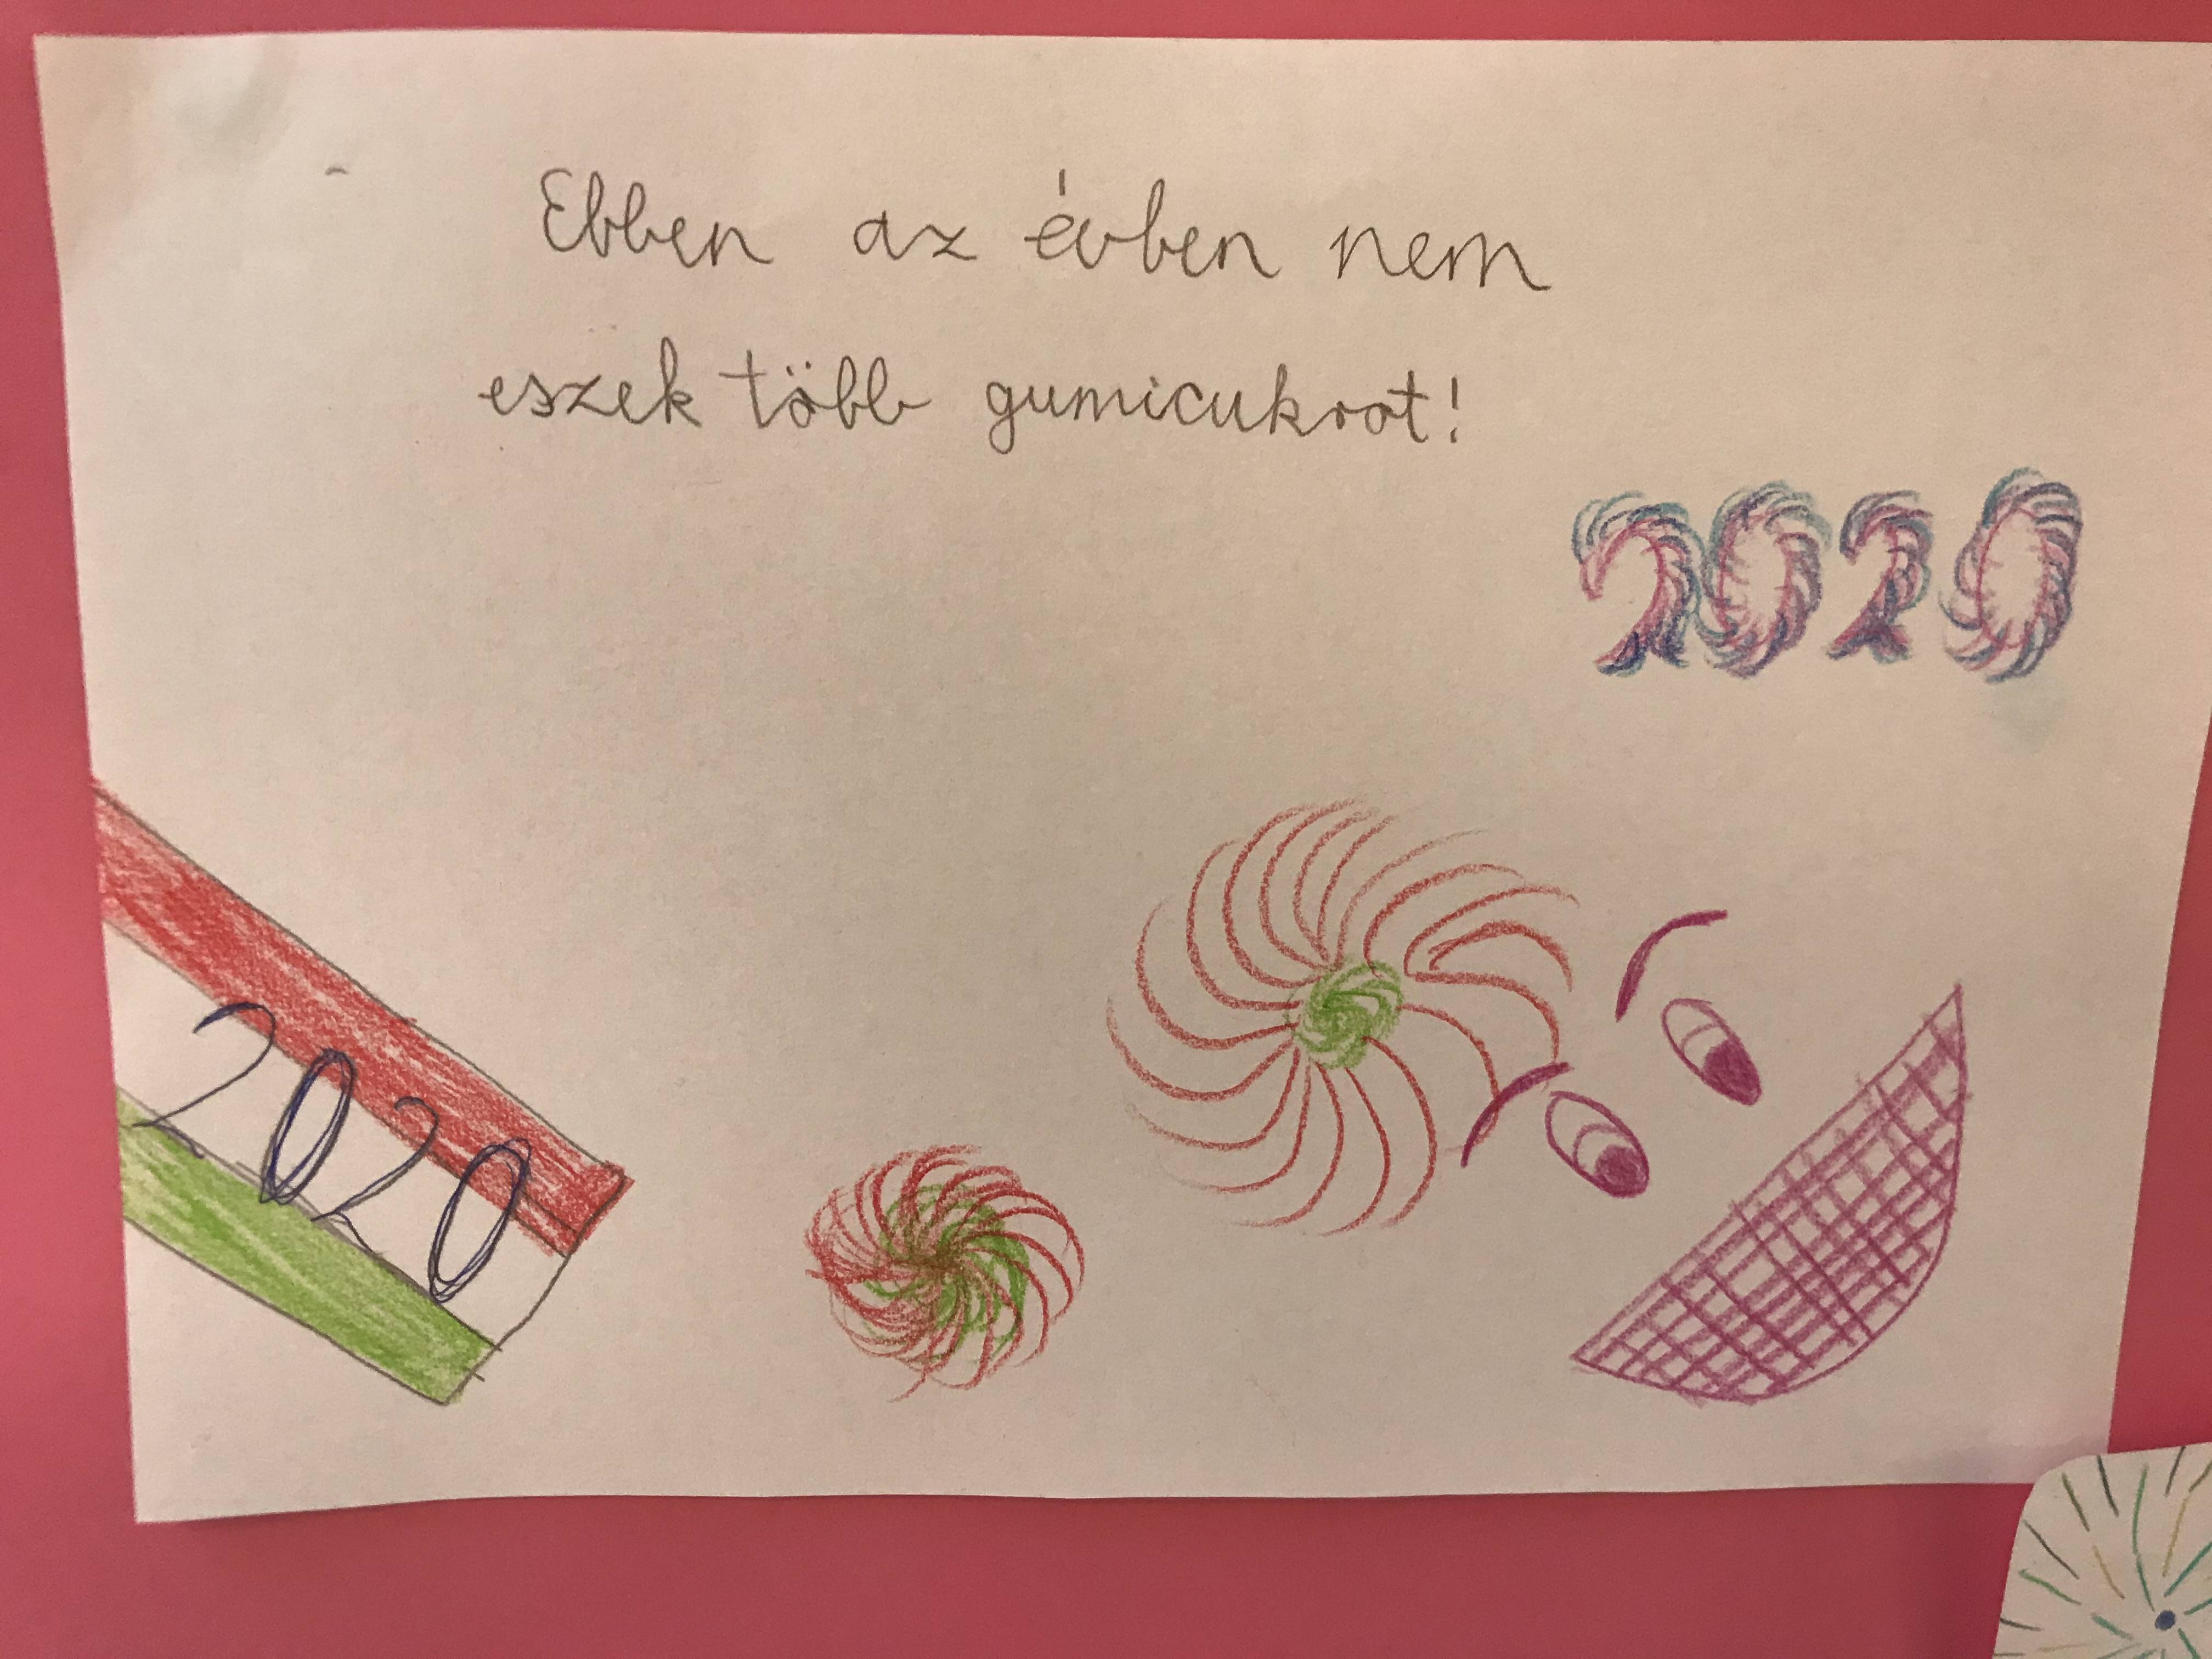 Ebben az évben nem
eszek több gumicukrot!
2020
2020